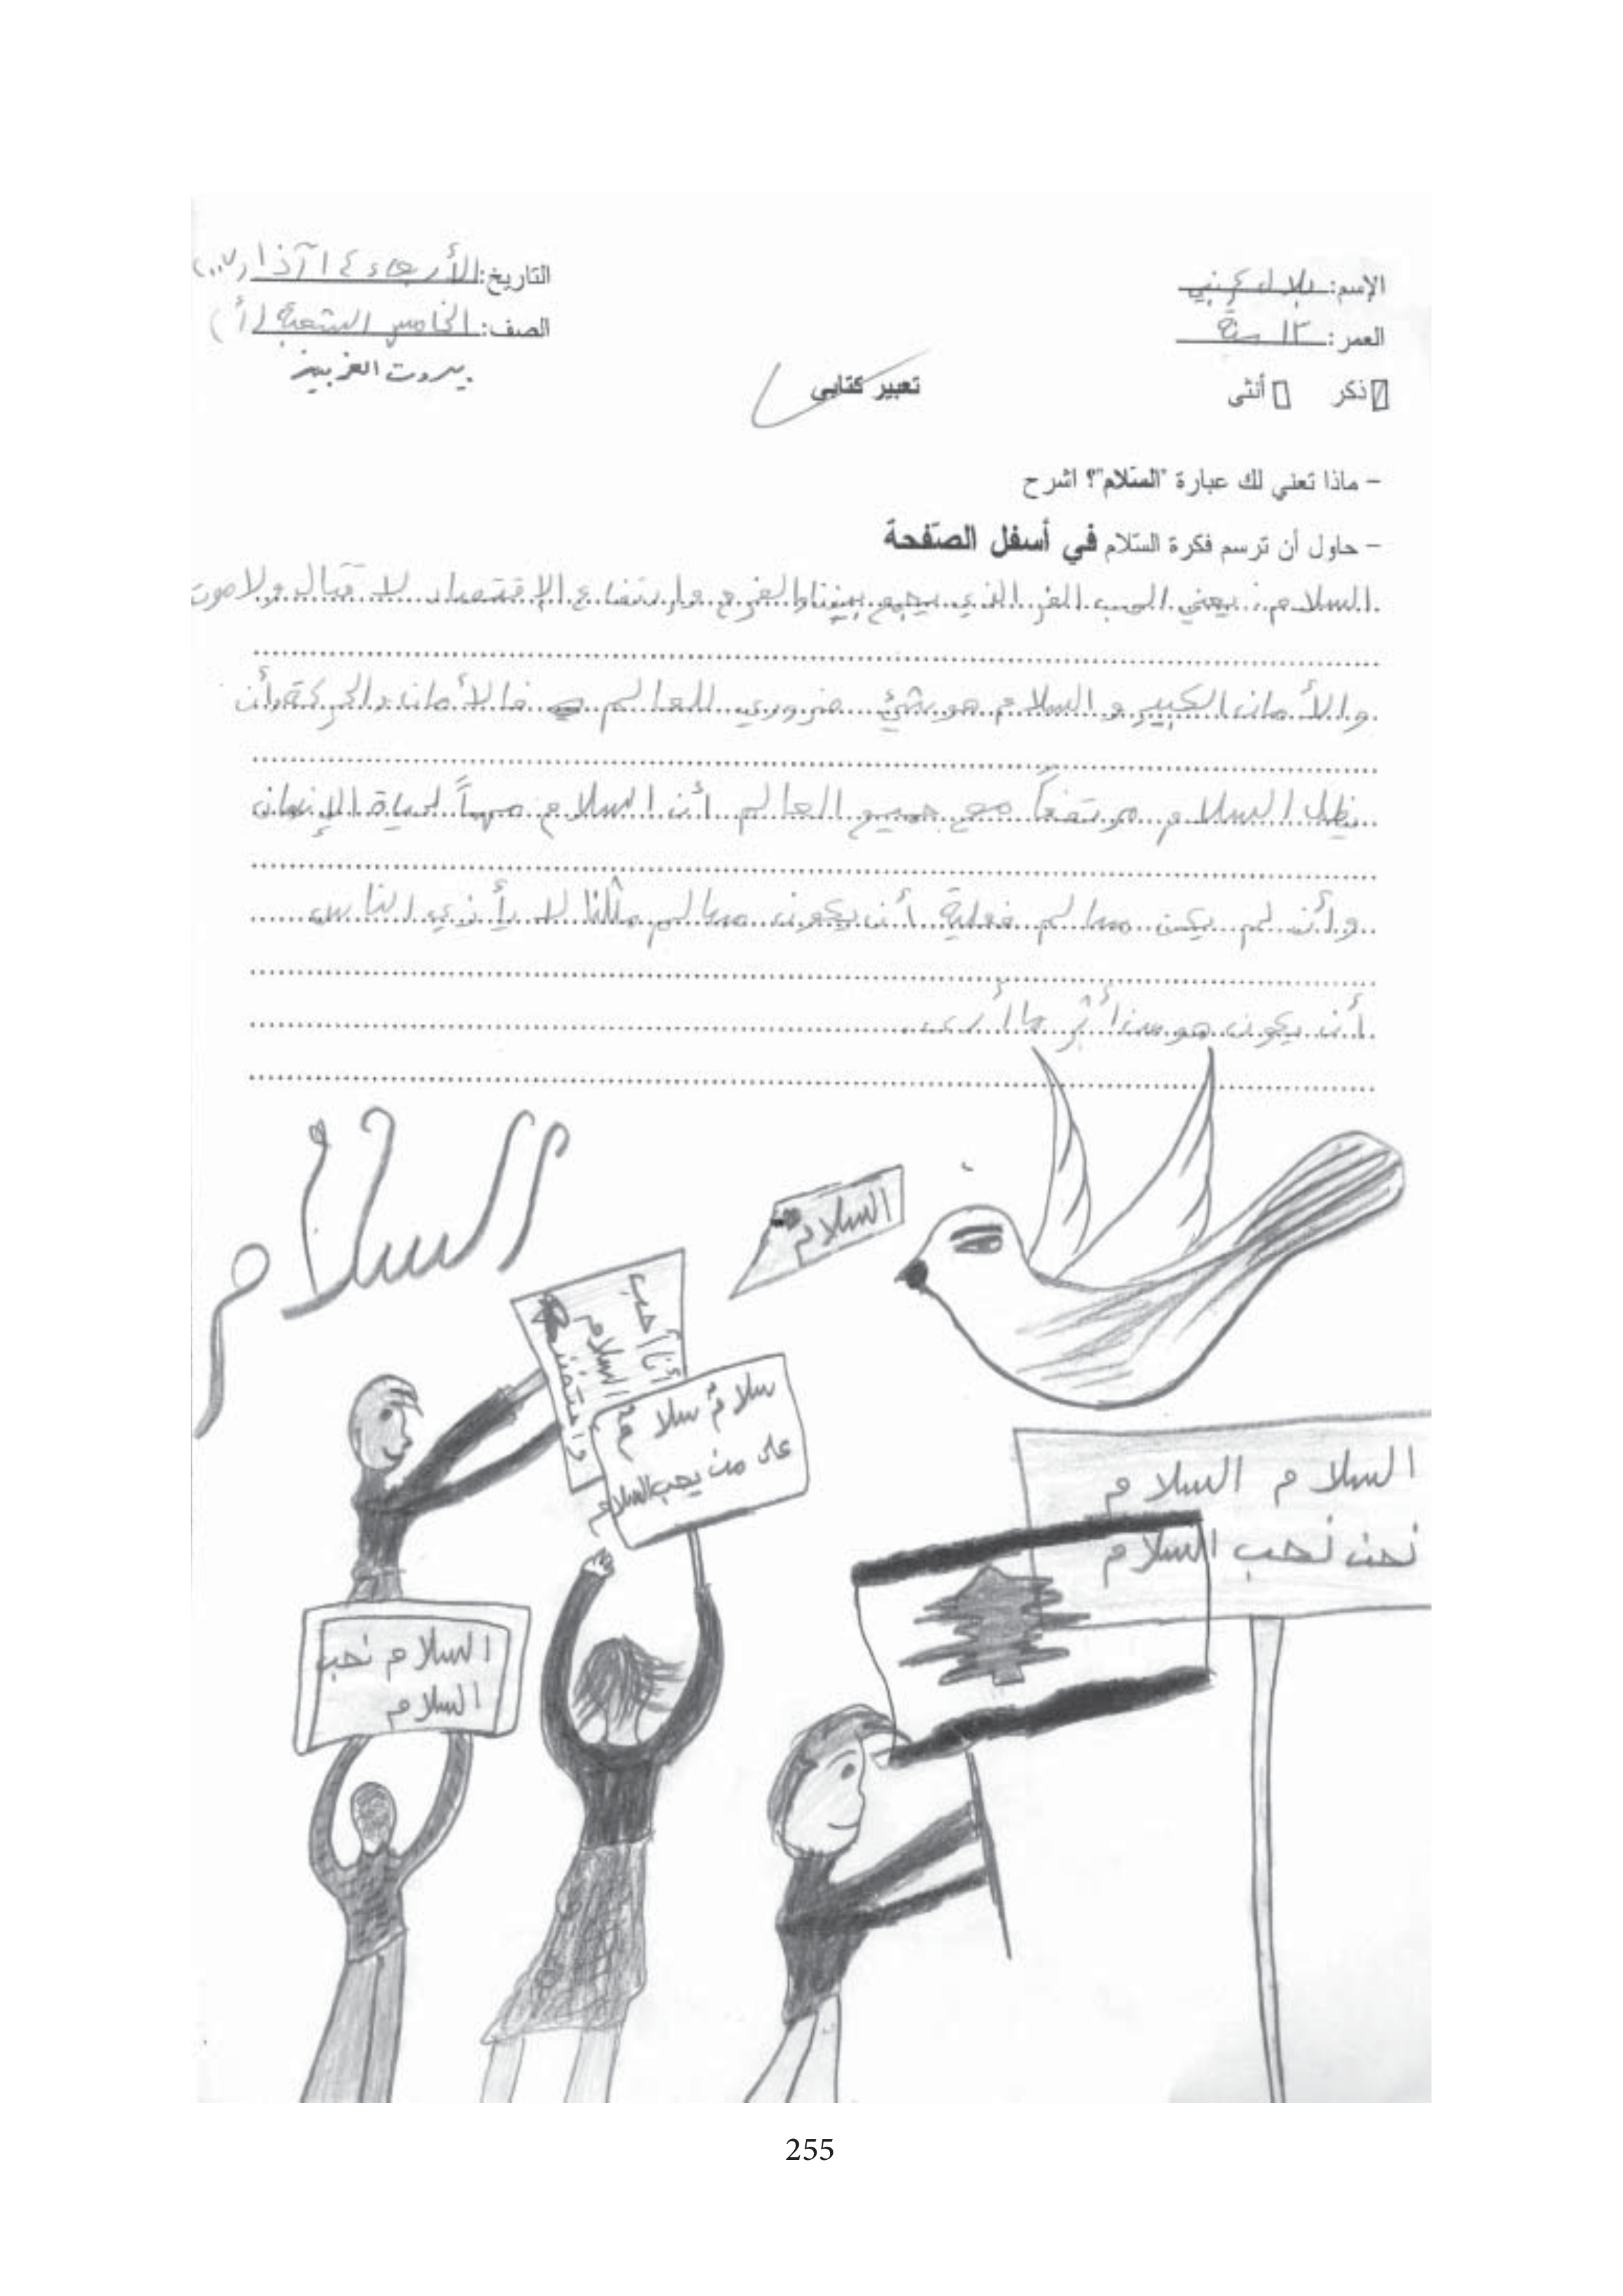 الإسم: بلال
التاريخ: الأربعاء ١٤ آذار
العمر: ١٣ سنة
الصف: الخامس الشعبة (أ)
بيروت الغربية
ذكر أنثى
تعبير كتابي
- ماذا تعني لك عبارة "السّلام"؟ اشرح
- حاول أن ترسم فكرة السّلام في أسفل الصّفحة
السلام: يعني الحب الذي يجمع بيننا والفرح وارتفاع الإقتصاد لا قتال ولا موت
والأمان الكبير و السلام هو شئ ضروري للعالم فالأمان والحركة وأن
يظل السلام مرتفعاً مع جميع العالم أن السلام مهماً لحياة الإنسان
وأن لم يكن مسالم فعلية أن يكون مسالم مثلنا لا يأذي الناس
أن يكون هو من
السلام
السلام
أنا أحب
السلام
سلامٌ سلام
على من يحب السلام
السلام السلام
نحن نحب السلام
السلام نحب
السلام
255